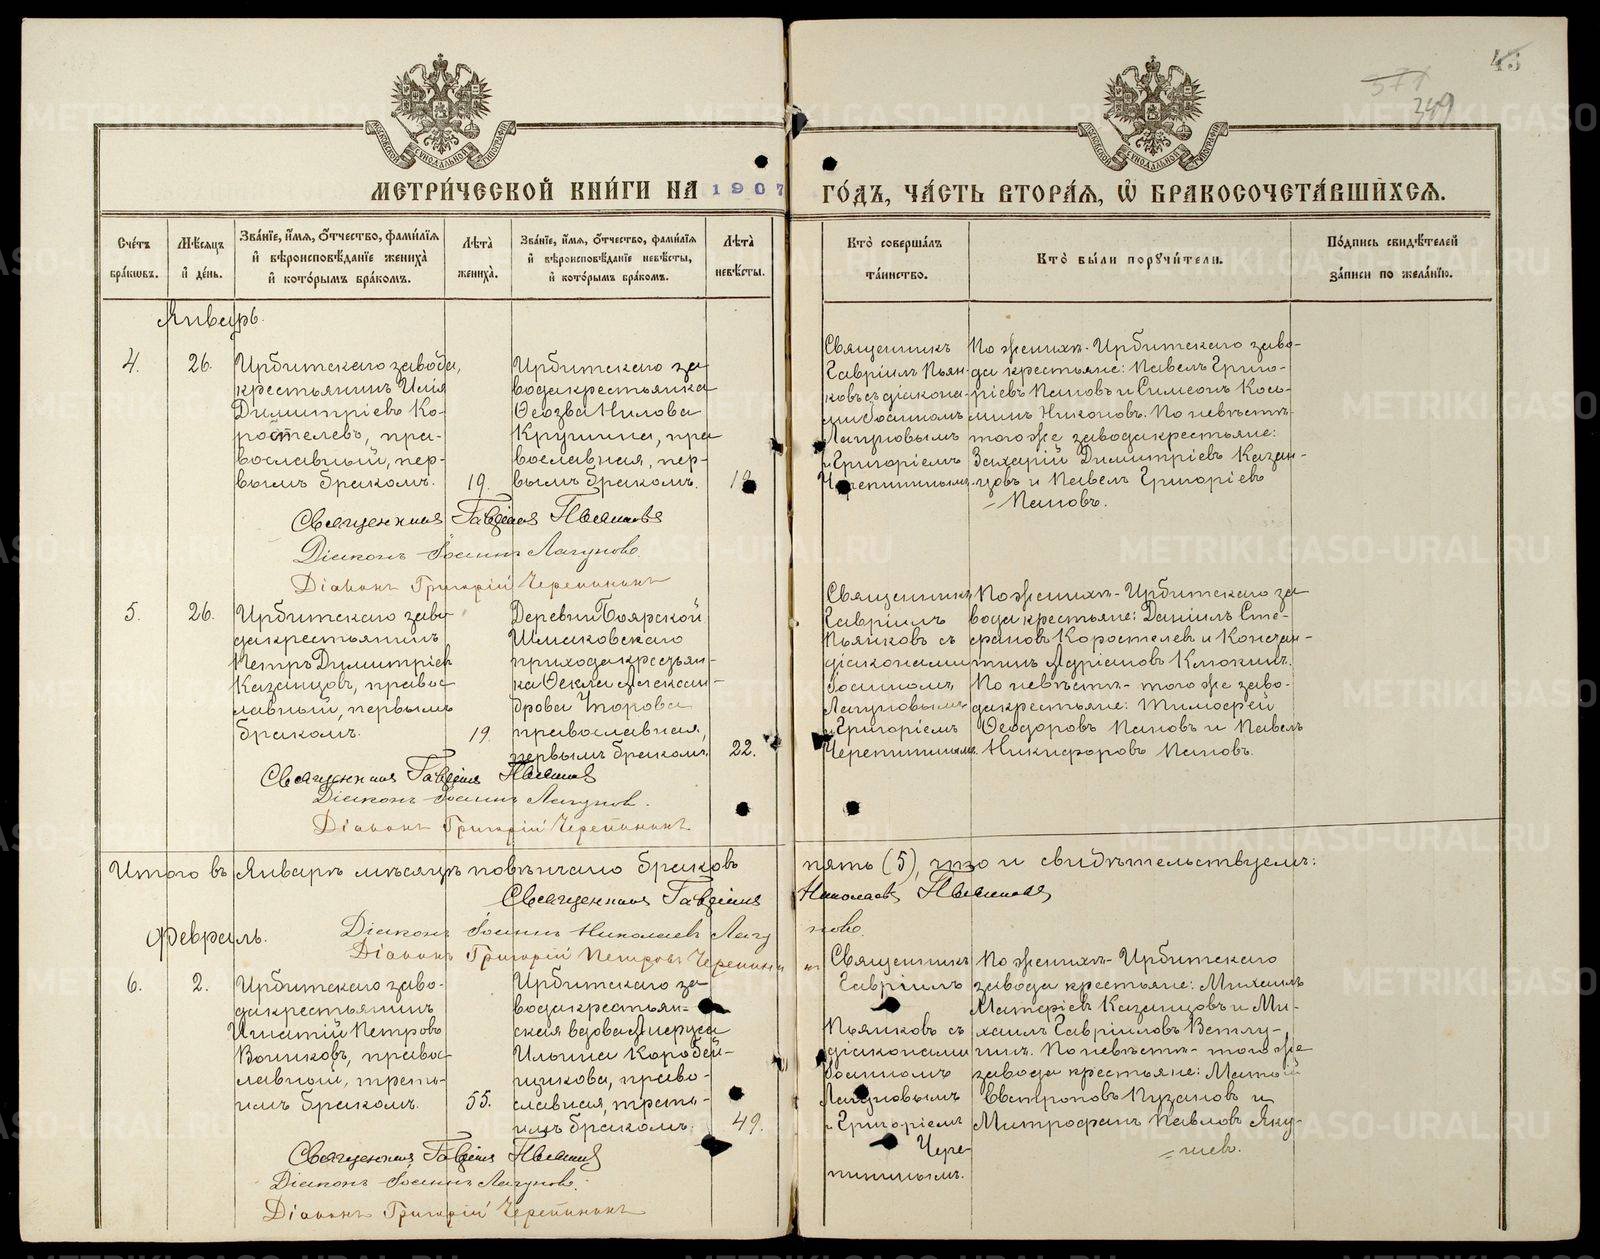 43
371
349
МЕТРИ́ЧЕСКОЙ КНИ́ГИ НА 1907 ГО́ДЪ, ЧА́СТЬ ВТОРА́Я, Ѡ БРАКОСОЧЕТА́ВШИХСЯ.
Сче́тъ бра́ковъ.
Мѣ́сяцъ и де́нь.
Зва́нїе, и́мя, о́тчество, фами́лїя и вѣроисповѣ́данїе жениха̀ и кото́рымъ бра́комъ.
Лѣ́та жениха̀.
Зва́нїе, и́мя, о́тчество, фами́лїя и вѣроисповѣ́данїе невѣ́сты, и кото́рымъ бра́комъ.
Лѣ́та невѣ́сты.
Кто̀ соверша́лъ та́инство.
Кто̀ бы́ли порꙋчи́тели.
По́дпись свидѣ́телей за́писи по жела́нїю.
Январь.
4.
26.
Ирбитскаго завода,
крестьянинъ Илія
Димитріевъ Ко-
ростелевъ, пра-
вославный, пер-
вымъ бракомъ.
19.
Ирбитскаго за
вода крестьянка
Ѳеозва Нилова
Кручина, пра
вославная, пер-
вымъ бракомъ.
Священникъ
Гавріилъ Пьян-
ковъ съ діакона-
ми Іоанномъ
Лагуновымъ
и Григоріемъ
Черепининымъ.
По женихѣ- Ирбитскаго заво-
да крестьяне: Павелъ Григо-
ріевъ Паповъ и Симеонъ Кось-
минъ Никоновъ. По невѣстѣ-
того же завода крестьяне:
Захарій Димитріевъ Казан-
цовъ и Павелъ Григоріевъ
Паповъ.
Священникъ Гавріилъ Пьянковъ
Діаконъ Іоаннъ Лагуновъ
Діаконъ Григорій Черепининъ
5.
26.
Ирбитскаго заво
да крестьянинъ
Петръ Димитріев
Казанцовъ, правос
лавный, первымъ
бракомъ.
19.
Деревни Боярской
Шмаковскаго
прихода крестьян-
ка Ѳекла Алексан-
дрова Упорова
православная,
первымъ бракомъ.
22.
Священникъ
Гавріилъ
Пьянковъ съ
діаконами
Іоанномъ
Лагуновымъ
и Григоріемъ
Черепининымъ.
По женихѣ- Ирбитскаго за
вода крестьяне: Даніилъ Сте-
фановъ Коростелевъ и Констан-
тинъ Адріановъ Клюкинъ.
По невѣстѣ- того же заво-
да крестьяне: Тимоѳей
Ѳеодоровъ Паповъ и Павелъ
Никифоровъ Паповъ.
Священникъ Гавріилъ Пьянковъ
Діаконъ Іоаннъ Лагуновъ.
Діаконъ Григорій Черепининъ
Итого въ Январѣ мѣсяцѣ повѣнчано браковъ пять (5), что и свидѣтельствуемъ:
Священникъ Гавріилъ Николаевъ Пьянковъ
Діаконъ Іоаннъ Николаевъ Лагуновъ
Діаконъ Григорій Петровъ Черепининъ
Февраль.
6.
2.
Ирбитскаго заво-
да крестьянинъ
Игнатій Петровъ
Воинковъ, правос
лавный, треть-
имъ бракомъ.
55.
Ирбитскаго за
вода крестьян-
ская вдова
Ильина Коробей-
щикова, право-
славная, треть-
имъ бракомъ.
49.
Священникъ
Гавріилъ
Пьянковъ съ
діаконами
Іоанномъ
Лагуновымъ
и Григоріемъ
Чере-
пининымъ.
По женихѣ- Ирбитскаго
завода крестьяне: Михаилъ
Матѳіевъ Казанцовъ и Ми-
хаилъ Гавріиловъ Ветлу-
гинъ. По невѣстѣ- того же
завода крестьяне: Матѳій
Евстроповъ Пузановъ и
Митрофанъ Павловъ Яку-
шевъ.
Священникъ Гавріилъ Пьянковъ
Діаконъ Іоаннъ Лагуновъ.
Діаконъ Григорій Черепининъ
METRIKI.GASO-URAL.RU